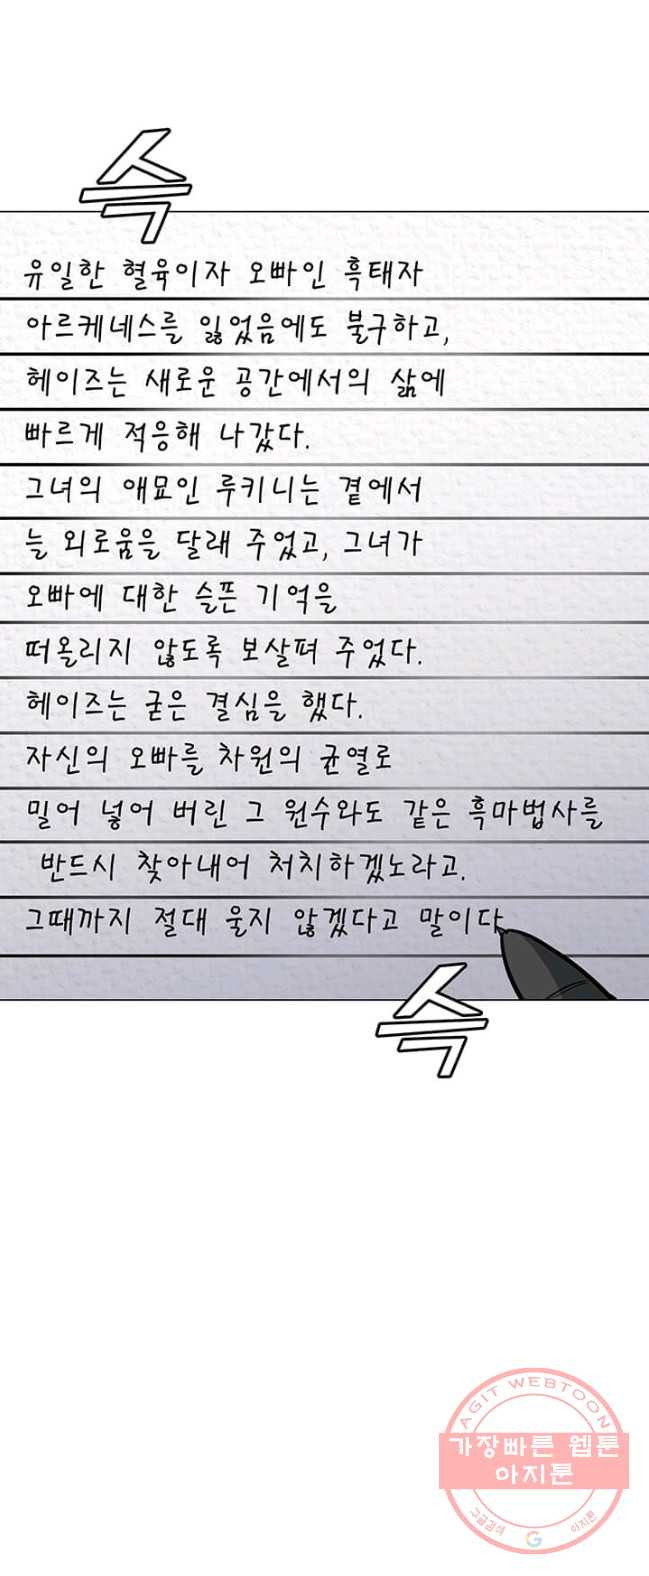 슥
유일한 혈육이자 오빠인 흑태자
아르케네스를 잃었음에도 불구하고,
헤이즈는 새로운 공간에서의 삶에
빠르게 적응해 나갔다.
그녀의 애묘인 루키니는 곁에서
늘 외로움을 달래 주었고, 그녀가
오빠에 대한 슬픈 기억을
떠올리지 않도록 보살펴 주었다.
헤이즈는 굳은 결심을 했다.
자신의 오빠를 차원의 균열로
밀어 넣어 버린 그 원수와도 같은 흑마법사를
반드시 찾아내어 처치하겠노라고.
그때까지 절대 울지 않겠다고 말이다
슥
AGIT WEBTOON
가장빠른 웹툰
아지툰
구글검색 G 아지툰